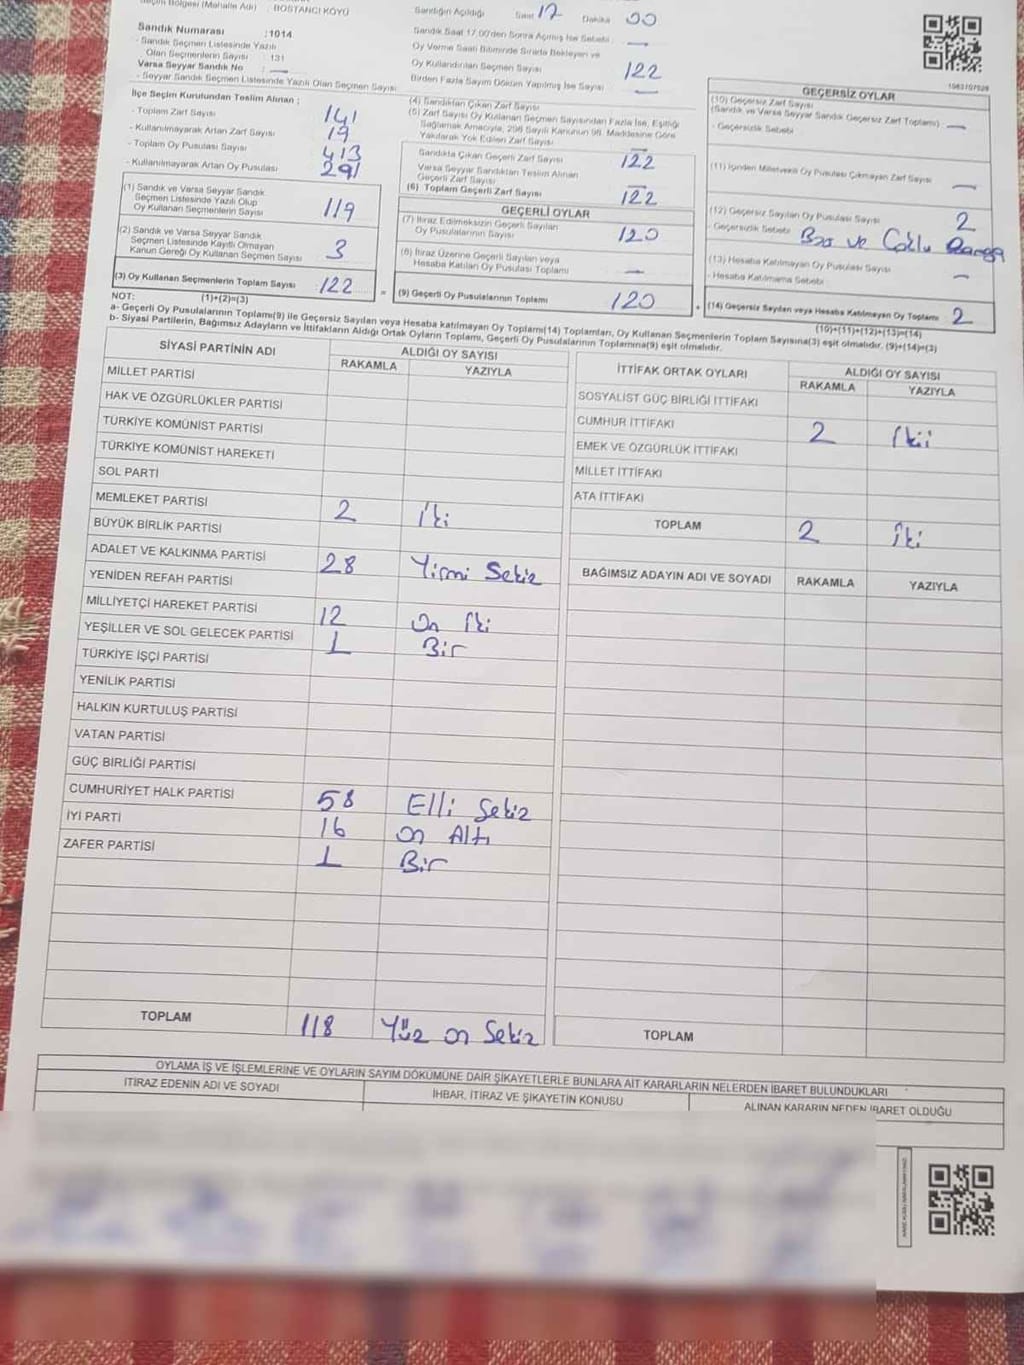 Seçim Bölgesi (Mahalle Adı) : BOSTANCI KÖYÜ
Sandık Numarası :1014
- Sandık Seçmen Listesinde Yazılı
Olan Seçmenlerin Sayısı : 131
Varsa Seyyar Sandık No : —
- Seyyar Sandık Seçmen Listesinde Yazılı Olan Seçmen Sayısı
İlçe Seçim Kurulundan Teslim Alınan ;
- Toplam Zarf Sayısı 141
- Kullanılmayarak Artan Zarf Sayısı 19
- Toplam Oy Pusulası Sayısı 413
- Kullanılmayarak Artan Oy Pusulası 291
(1) Sandık ve Varsa Seyyar Sandık
Seçmen Listesinde Yazılı Olup
Oy Kullanan Seçmenlerin Sayısı 119
(2) Sandık ve Varsa Seyyar Sandık
Seçmen Listesinde Kayıtlı Olmayan
Kanun Gereği Oy Kullanan Seçmen Sayısı 3
(3) Oy Kullanan Seçmenlerin Toplam Sayısı 122
(1)+(2)=(3)
Sandığın Açıldığı Saat 17 Dakika 00
Sandık Saat 17.00'den Sonra Açılmış İse Sebebi : —
Oy Verme Saati Bitiminde Sırada Bekleyen ve
Oy Kullandırılan Seçmen Sayısı 122
Birden Fazla Sayım Döküm Yapılmış İse Sayısı —
(4) Sandıktan Çıkan Zarf Sayısı
(5) Zarf Sayısı Oy Kullanan Seçmen Sayısından Fazla İse, Eşitliği
Sağlamak Amacıyla, 298 Sayılı Kanunun 98. Maddesine Göre
Yakılarak Yok Edilen Zarf Sayısı —
Sandıkta Çıkan Geçerli Zarf Sayısı 122
Varsa Seyyar Sandıktan Teslim Alınan
Geçerli Zarf Sayısı —
(6) Toplam Geçerli Zarf Sayısı 122
GEÇERLİ OYLAR
(7) İtiraz Edilmeksizin Geçerli Sayılan
Oy Pusulalarının Sayısı 120
(8) İtiraz Üzerine Geçerli Sayılan veya
Hesaba Katılan Oy Pusulası Toplamı —
= (9) Geçerli Oy Pusulalarının Toplamı 120
1083107028
GEÇERSİZ OYLAR
(10) Geçersiz Zarf Sayısı
(Sandık ve Varsa Seyyar Sandık Geçersiz Zarf Toplamı) —
- Geçersizlik Sebebi
(11) İçinden Milletvekili Oy Pusulası Çıkmayan Zarf Sayısı —
(12) Geçersiz Sayılan Oy Pusulası Sayısı 2
- Geçersizlik Sebebi Boş ve Çoklu
(13) Hesaba Katılmayan Oy Pusulası Sayısı —
- Hesaba Katılmama Sebebi
+ (14) Geçersiz Sayılan veya Hesaba Katılmayan Oy Toplamı 2
(10)+(11)+(12)+(13)=(14)
NOT:
a- Geçerli Oy Pusulalarının Toplamı(9) ile Geçersiz Sayılan veya Hesaba katılmayan Oy Toplamı(14) Toplamları, Oy Kullanan Seçmenlerin Toplam Sayısına(3) eşit olmalıdır. (9)+(14)=(3)
b- Siyasi Partilerin, Bağımsız Adayların ve İttifakların Aldığı Ortak Oyların Toplamı, Geçerli Oy Pusulalarının Toplamına(9) eşit olmalıdır.
SİYASİ PARTİNİN ADI ALDIĞI OY SAYISI
RAKAMLA YAZIYLA
MİLLET PARTİSİ
HAK VE ÖZGÜRLÜKLER PARTİSİ
TÜRKİYE KOMÜNİST PARTİSİ
TÜRKİYE KOMÜNİST HAREKETİ
SOL PARTİ
MEMLEKET PARTİSİ 2 İki
BÜYÜK BİRLİK PARTİSİ
ADALET VE KALKINMA PARTİSİ 28 Yirmi Sekiz
YENİDEN REFAH PARTİSİ
MİLLİYETÇİ HAREKET PARTİSİ 12 On İki
YEŞİLLER VE SOL GELECEK PARTİSİ 1 Bir
TÜRKİYE İŞÇİ PARTİSİ
YENİLİK PARTİSİ
HALKIN KURTULUŞ PARTİSİ
VATAN PARTİSİ
GÜÇ BİRLİĞİ PARTİSİ
CUMHURİYET HALK PARTİSİ 58 Elli Sekiz
İYİ PARTİ 16 On Altı
ZAFER PARTİSİ 1 Bir
TOPLAM 118 Yüz on Sekiz
İTTİFAK ORTAK OYLARI ALDIĞI OY SAYISI
RAKAMLA YAZIYLA
SOSYALİST GÜÇ BİRLİĞİ İTTİFAKI
CUMHUR İTTİFAKI 2 İki
EMEK VE ÖZGÜRLÜK İTTİFAKI
MİLLET İTTİFAKI
ATA İTTİFAKI
TOPLAM 2 İki
BAĞIMSIZ ADAYIN ADI VE SOYADI RAKAMLA YAZIYLA
TOPLAM
OYLAMA İŞ VE İŞLEMLERİNE VE OYLARIN SAYIM DÖKÜMÜNE DAİR ŞİKAYETLERLE BUNLARA AİT KARARLARIN NELERDEN İBARET BULUNDUKLARI
İTİRAZ EDENİN ADI VE SOYADI İHBAR, İTİRAZ VE ŞİKAYETİN KONUSU ALINAN KARARIN NEDEN İBARET OLDUĞU